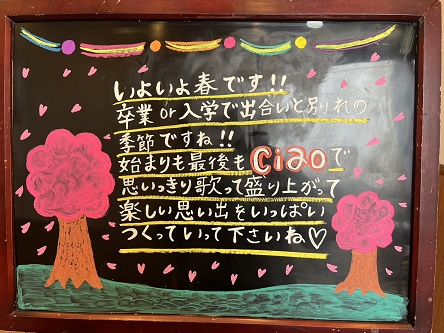 いよいよ春です!!
卒業or入学で出合いと別れの
季節ですね!!
始まりも最後もciaoで
思いっきり歌って盛り上がって
楽しい思い出をいっぱい
つくっていって下さいね♡